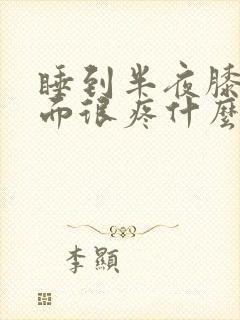 睡到半夜膝
而很疼什麼
李顯